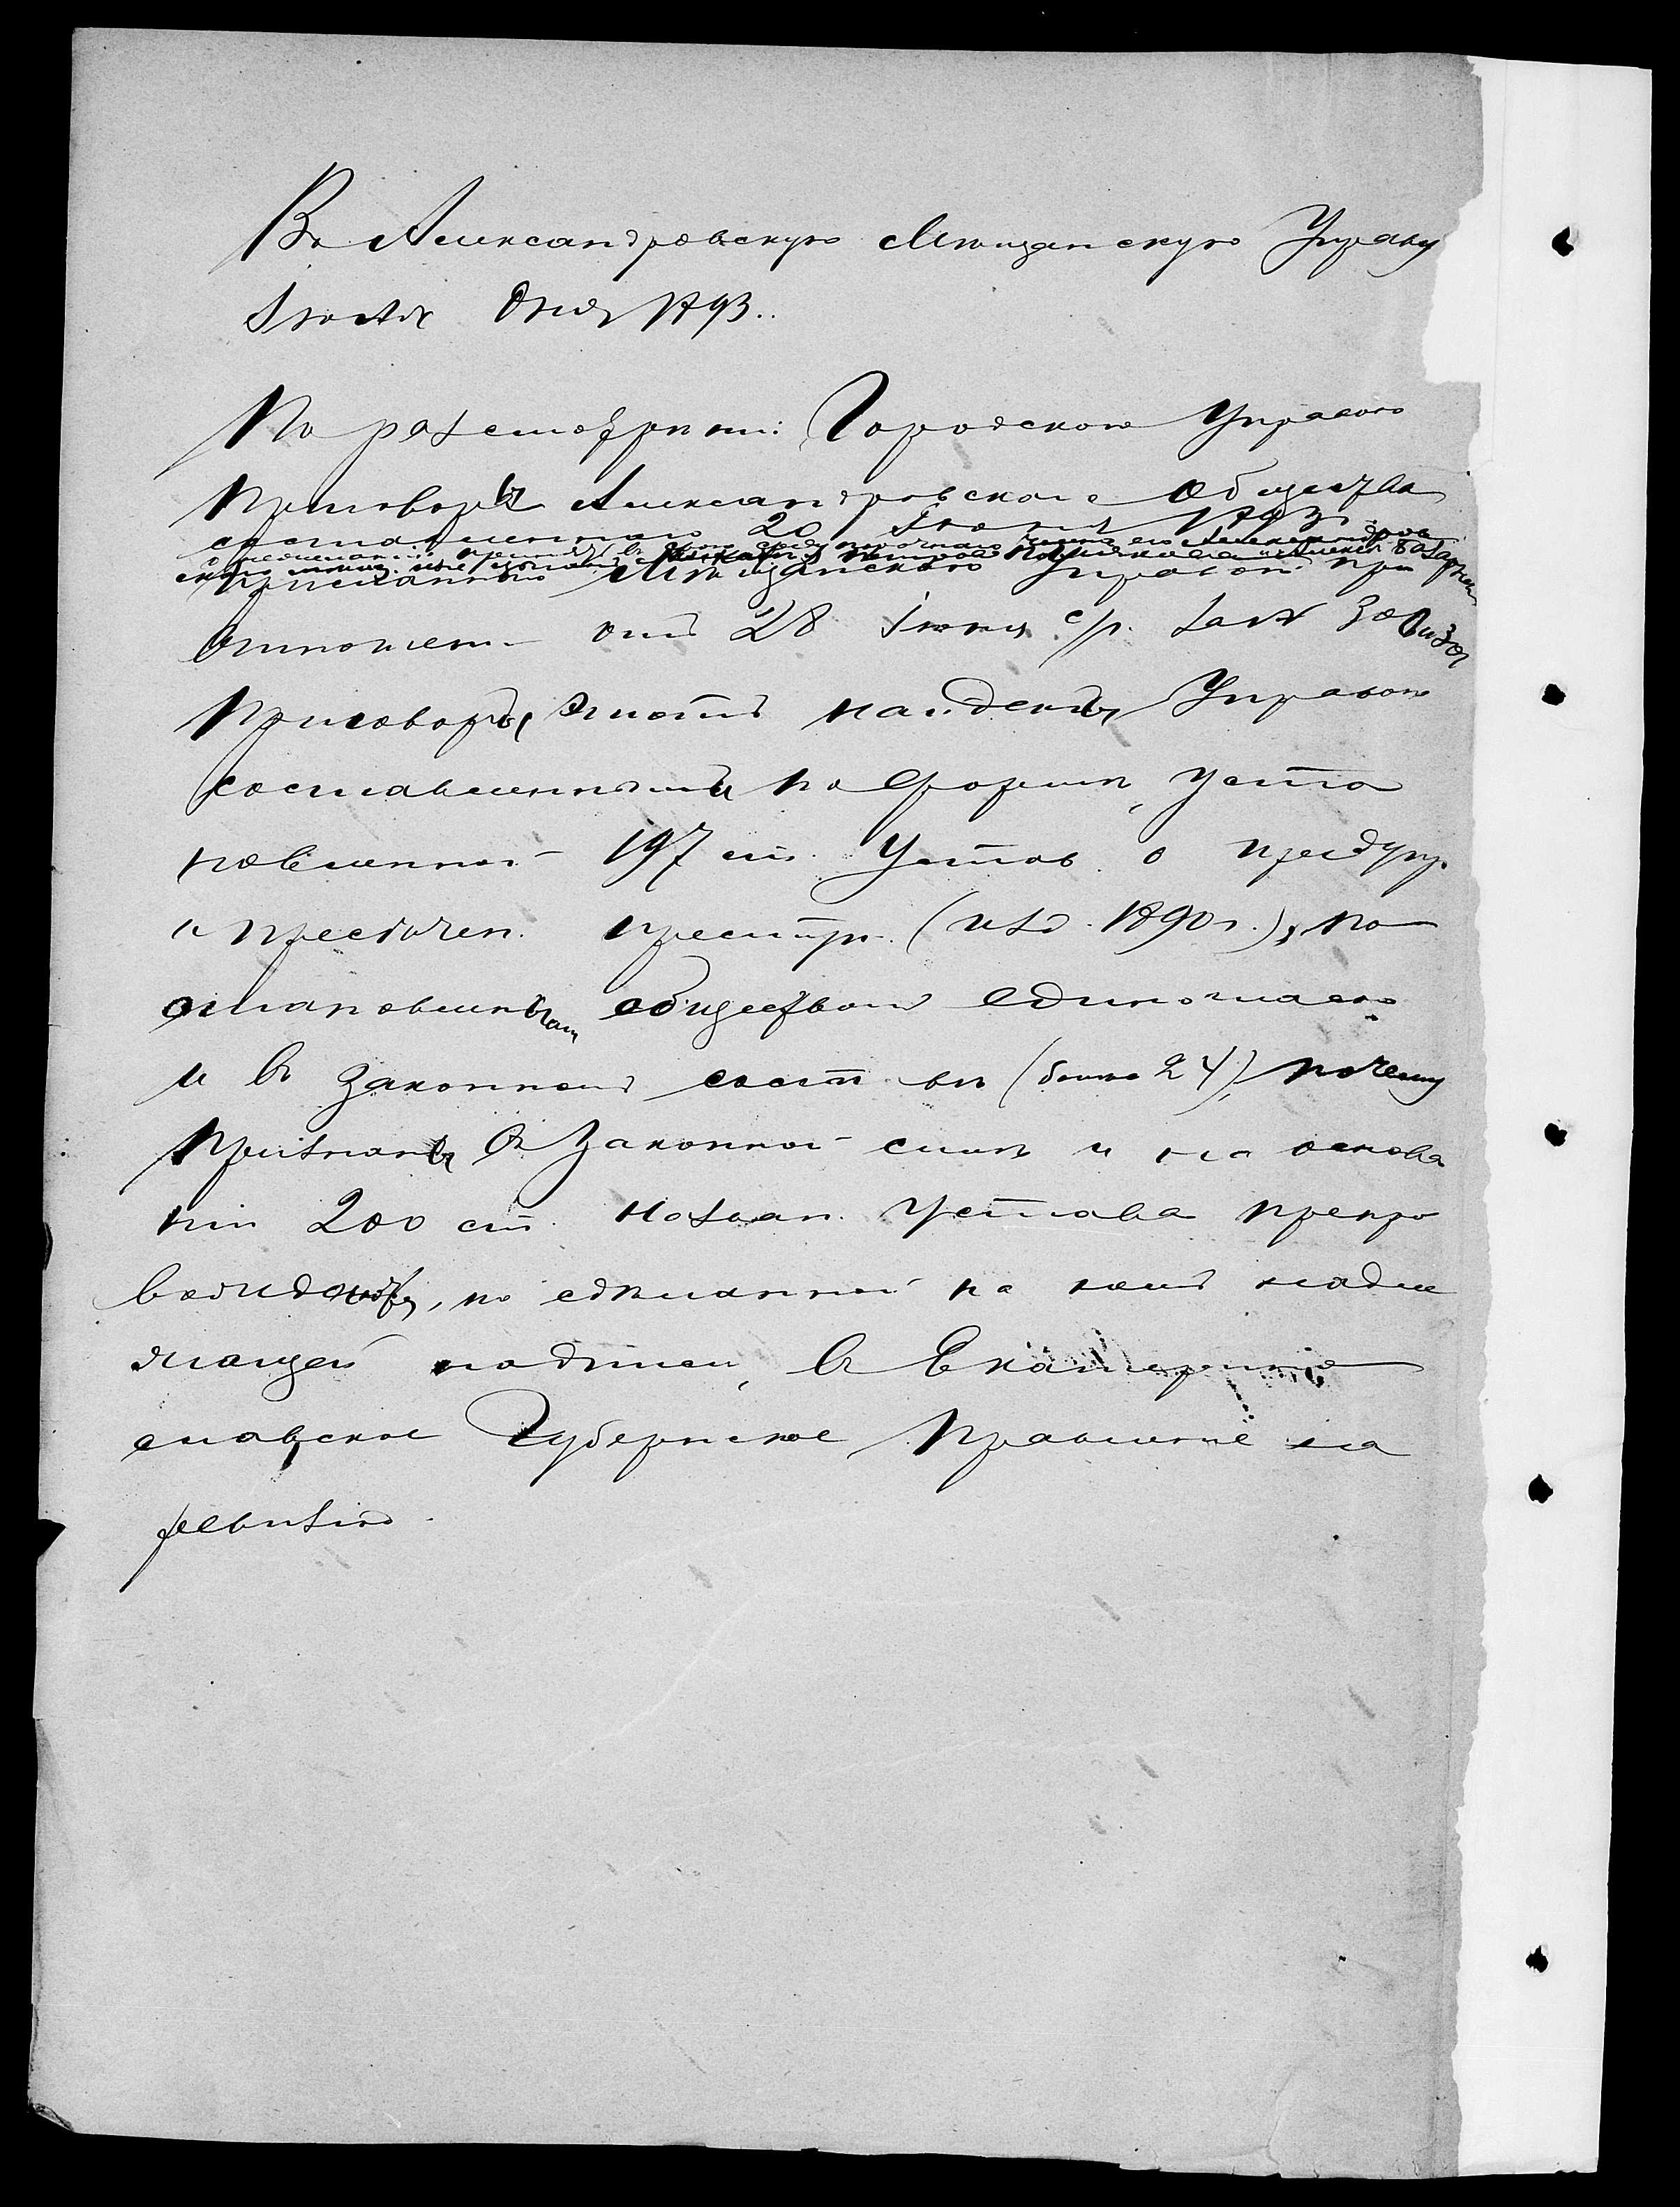 Въ Александровскую Мѣщанскую Управу
Іюля дня 1893.
По разсмотрѣніи Городскою Управою
приговоръ Александровскаго Общества
составленнаго 20 Іюня 1893
о нежеланіи принять въ свою среду порочнаго члена его Александров
скаго мѣщ.
присланнаго Мѣщанскою Управою при
отношеніи отъ 28 Іюня с/г. за № 300 и 301
Приговоръ этотъ найденъ Управою
составленнымъ по формѣ, уста
новленной 197 ст. Устав. о предупр.
и пресѣчен. преступ. (изд. 1890 г.), по
становленнымъ обществомъ единогласно
и въ законномъ состявѣ (болѣе 24), почему
признанъ въ законной силѣ и на основа
ніи 200 ст. назван. Устава препро
вожденъ, по сдѣланной на немъ надле
жащей надписи, въ Екатерино
славское Губернское Правленіе на
ревизію.